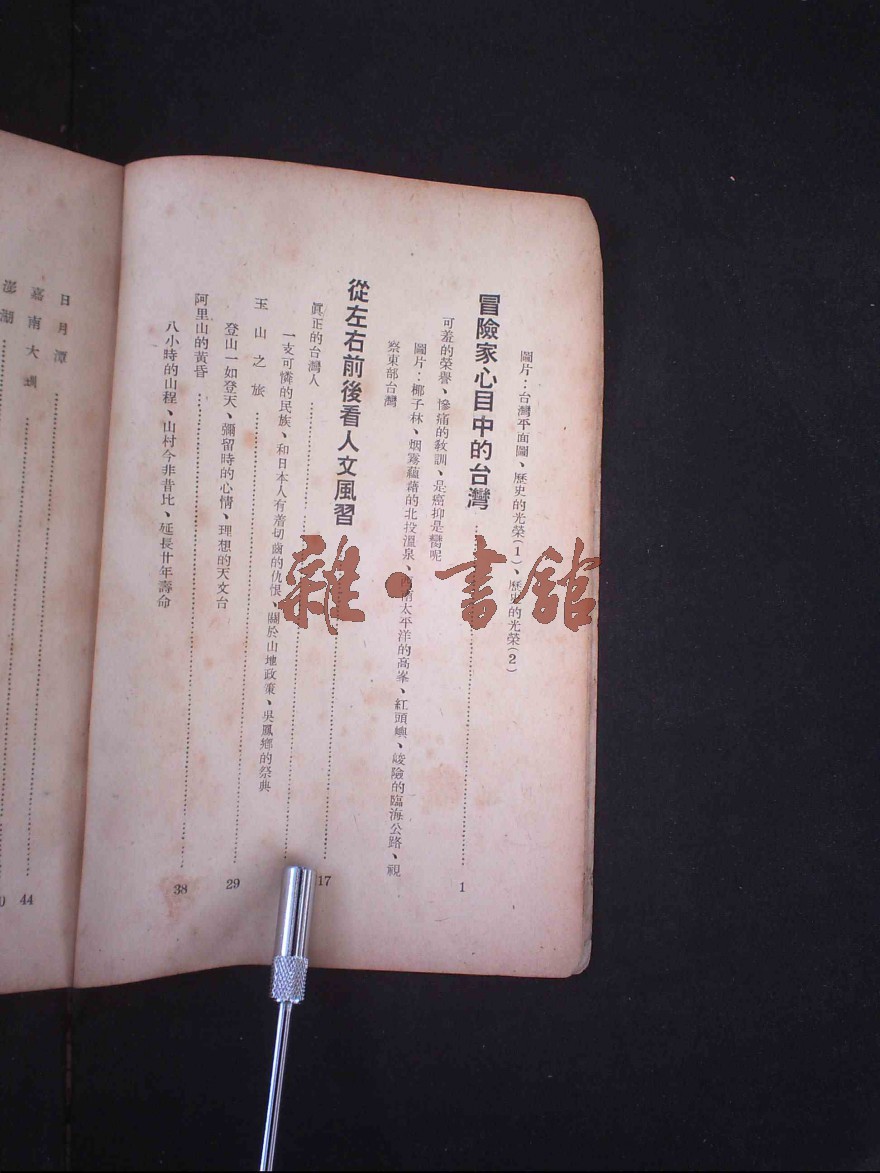 圖片：台灣平面圖、歷史的光榮(1)、歷史的光榮(2)
冒險家心目中的台灣 1
可羞的榮譽、慘痛的敎訓、是癌抑是嚮呢
圖片：椰子林、烟霧蘊藉的北投溫泉、南太平洋的高峯、紅頭嶼、峻險的臨海公路、視
察東部台灣
從左右前後看人文風習 17
眞正的台灣人
一支可憐的民族、和日本人有着切齒的仇恨、關於山地政策、吳鳳鄉的祭典
玉山之旅 29
登山一如登天、彌留時的心情、理想的天文台
阿里山的黃昏 38
八小時的山程、山村今非昔比、延長廿年壽命
日月潭
嘉南大圳 44
澎湖
雜·書館